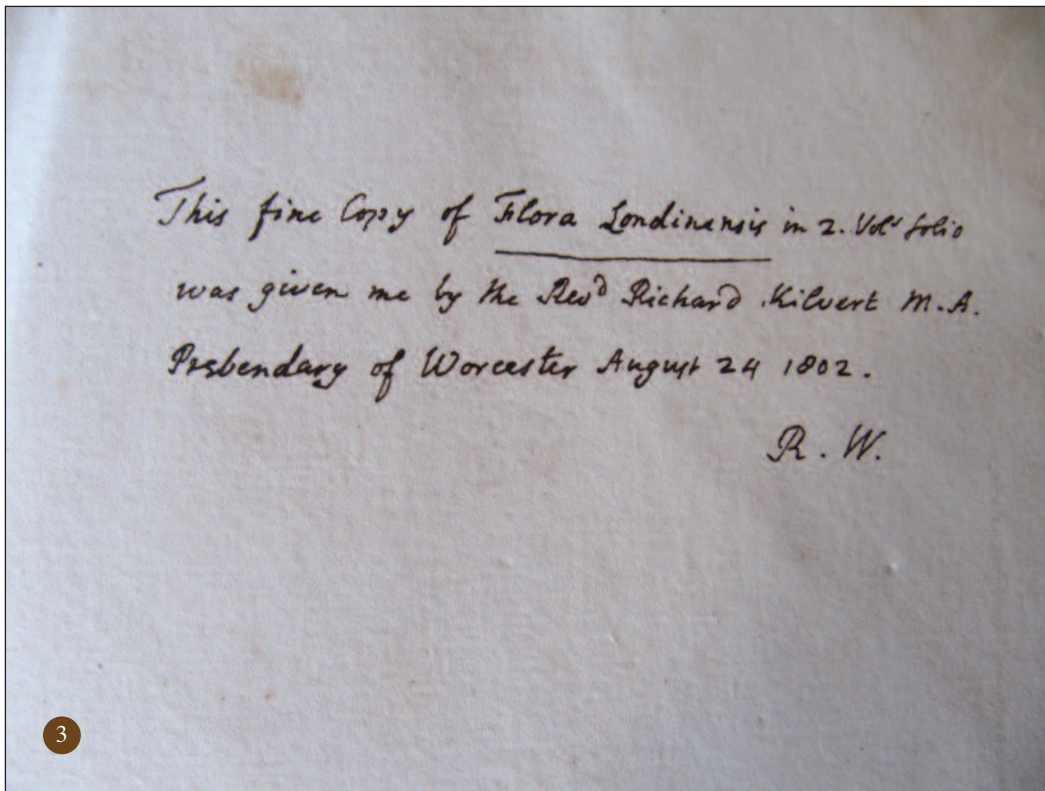 This fine Copy of Flora Londinensis in 2. Vols folio
was given me by the Revd Richard Kilvert M.A.
Prebendary of Worcester August 24 1802.
R. W.
3